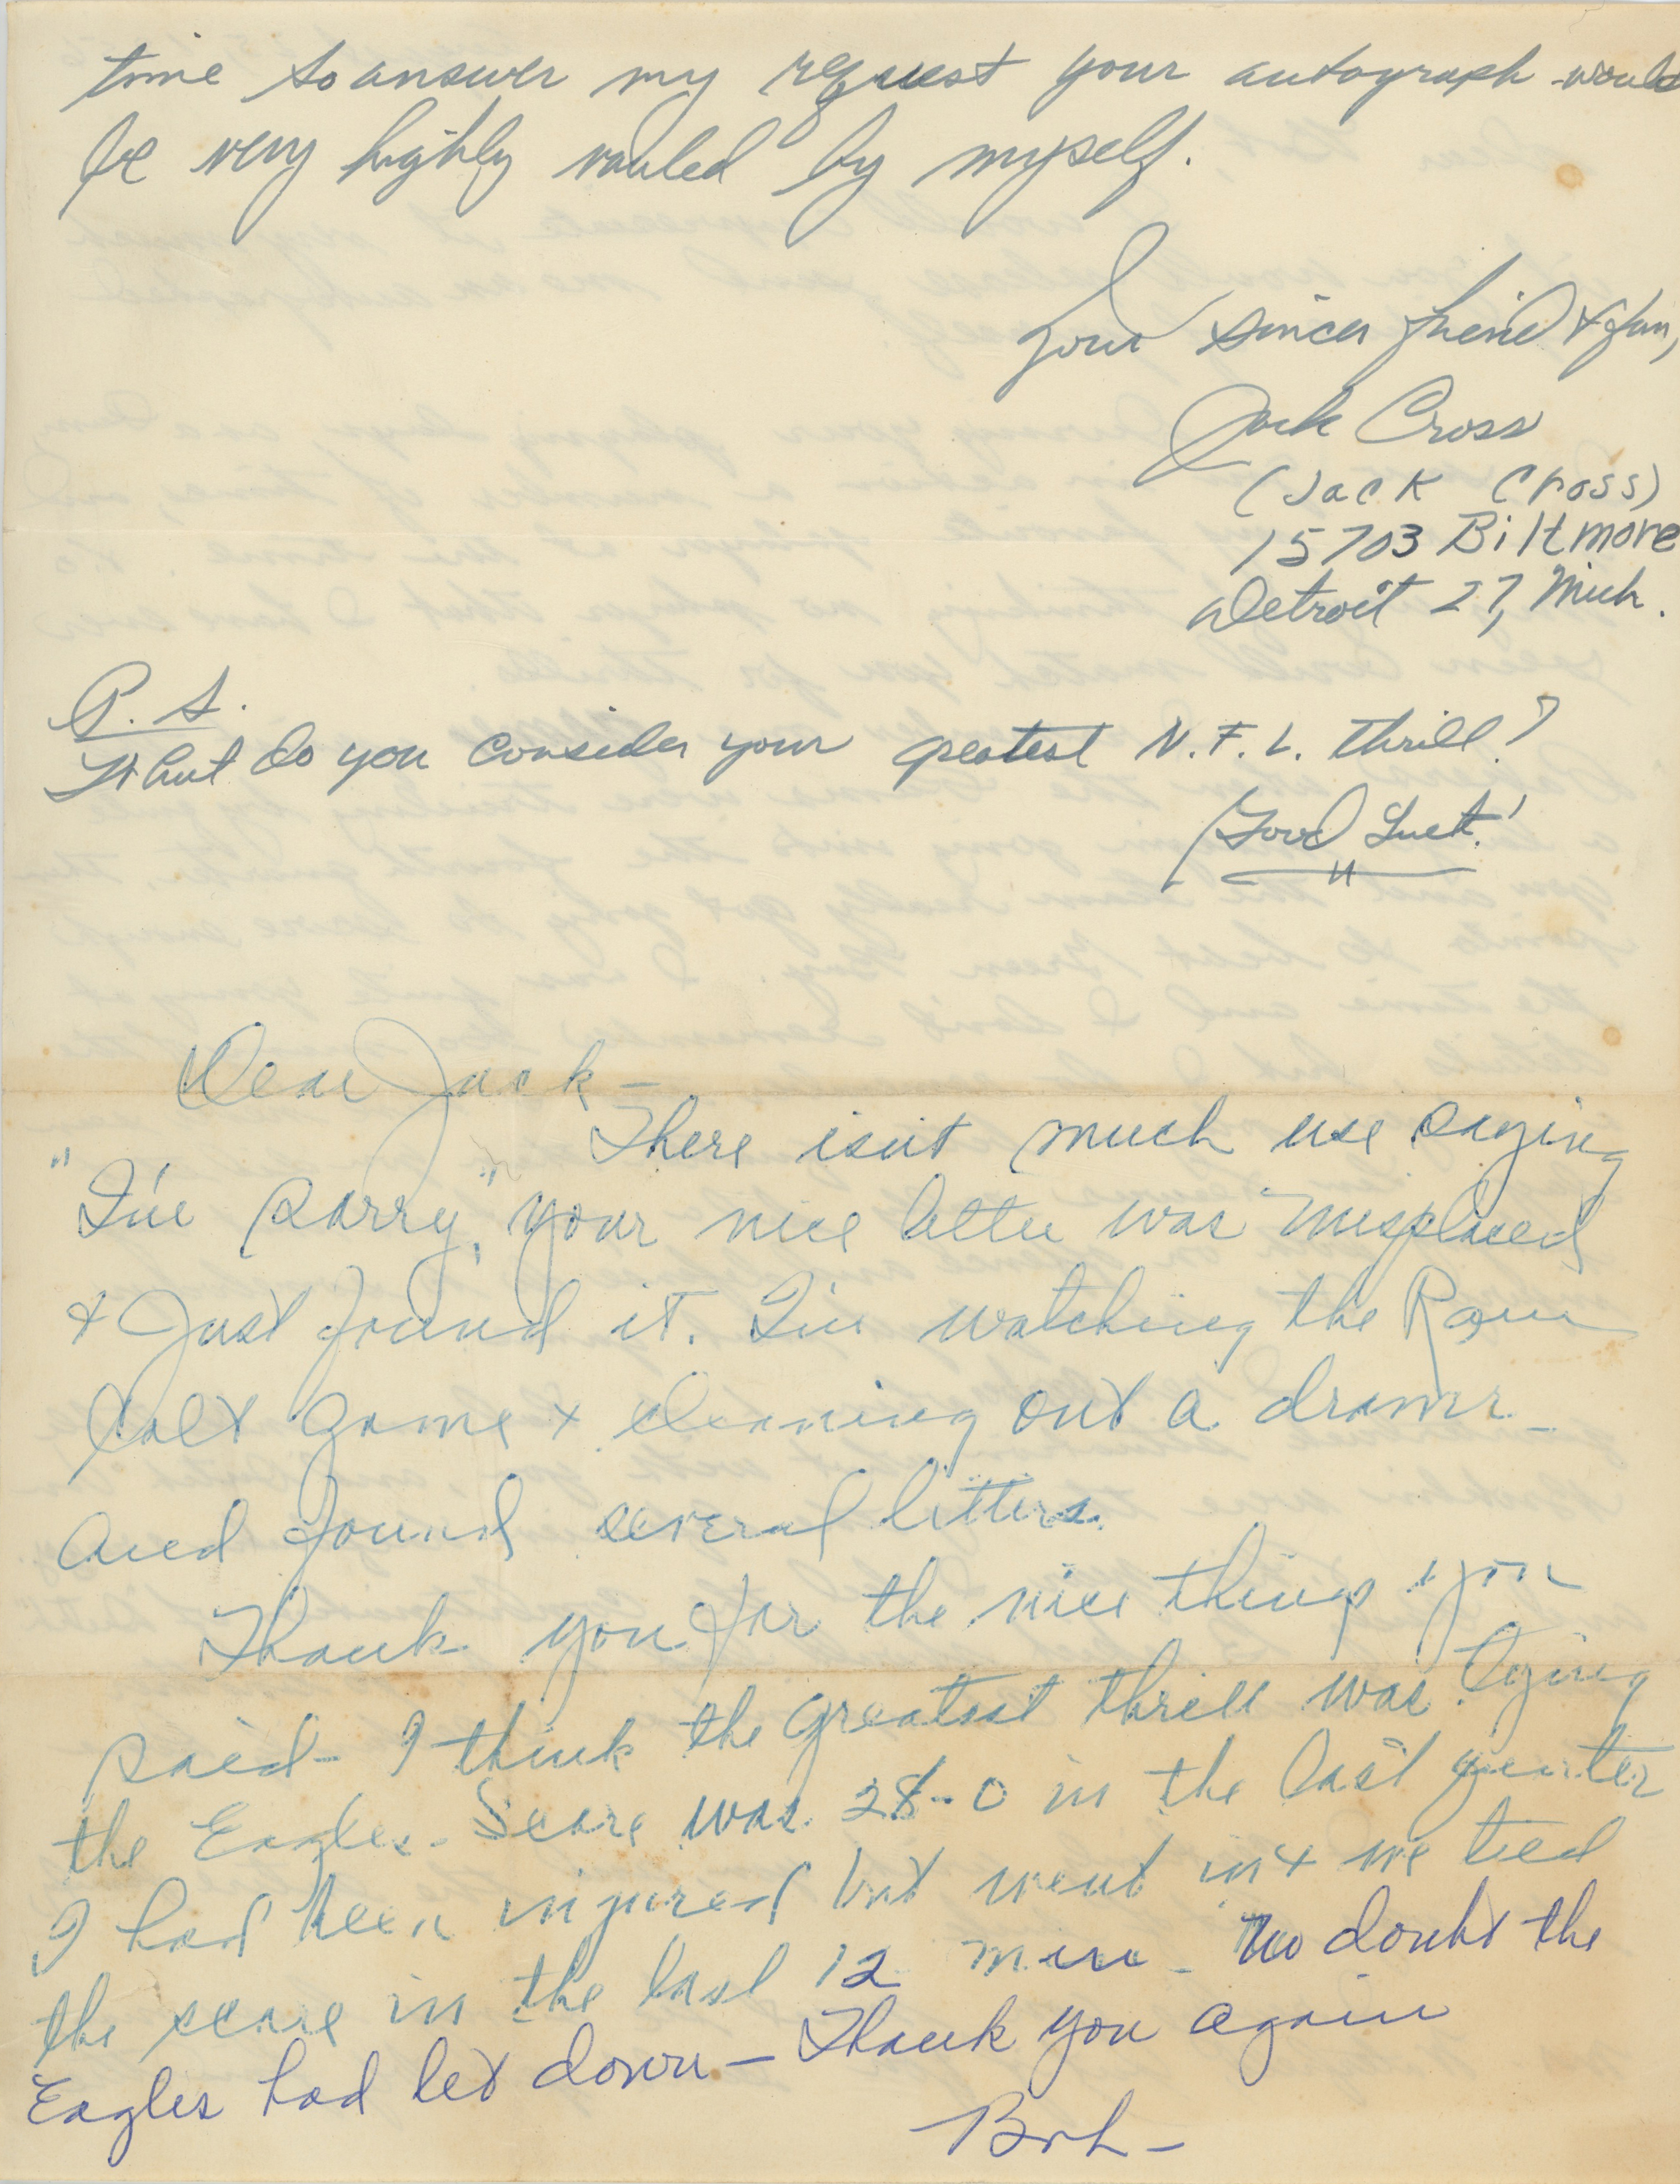 time to answer my request your autograph would
be very highly valued by myself.
Your sincer friend & fan,
Jack Cross
(Jack Cross)
15703 Biltmore
Detroit 27, Mich.
P.S.
What do you consider your greatest N.F.L. thrill?
Good Luck!
Dear Jack-
There isn't much use saying
"I'm sorry", your nice letter was misplaced
& Just found it. I'm watching the Ram
Colt game & cleaning out a drawer-
and found several letters.
Thank you for the nice things you
said- I think the greatest thrill was tying
the Eagles- Score was 28-0 in the last quarter
I had been injured but went in & we tied
the score in the last 12 min- No doubt the
Eagles had let down- Thank you again
Bob-